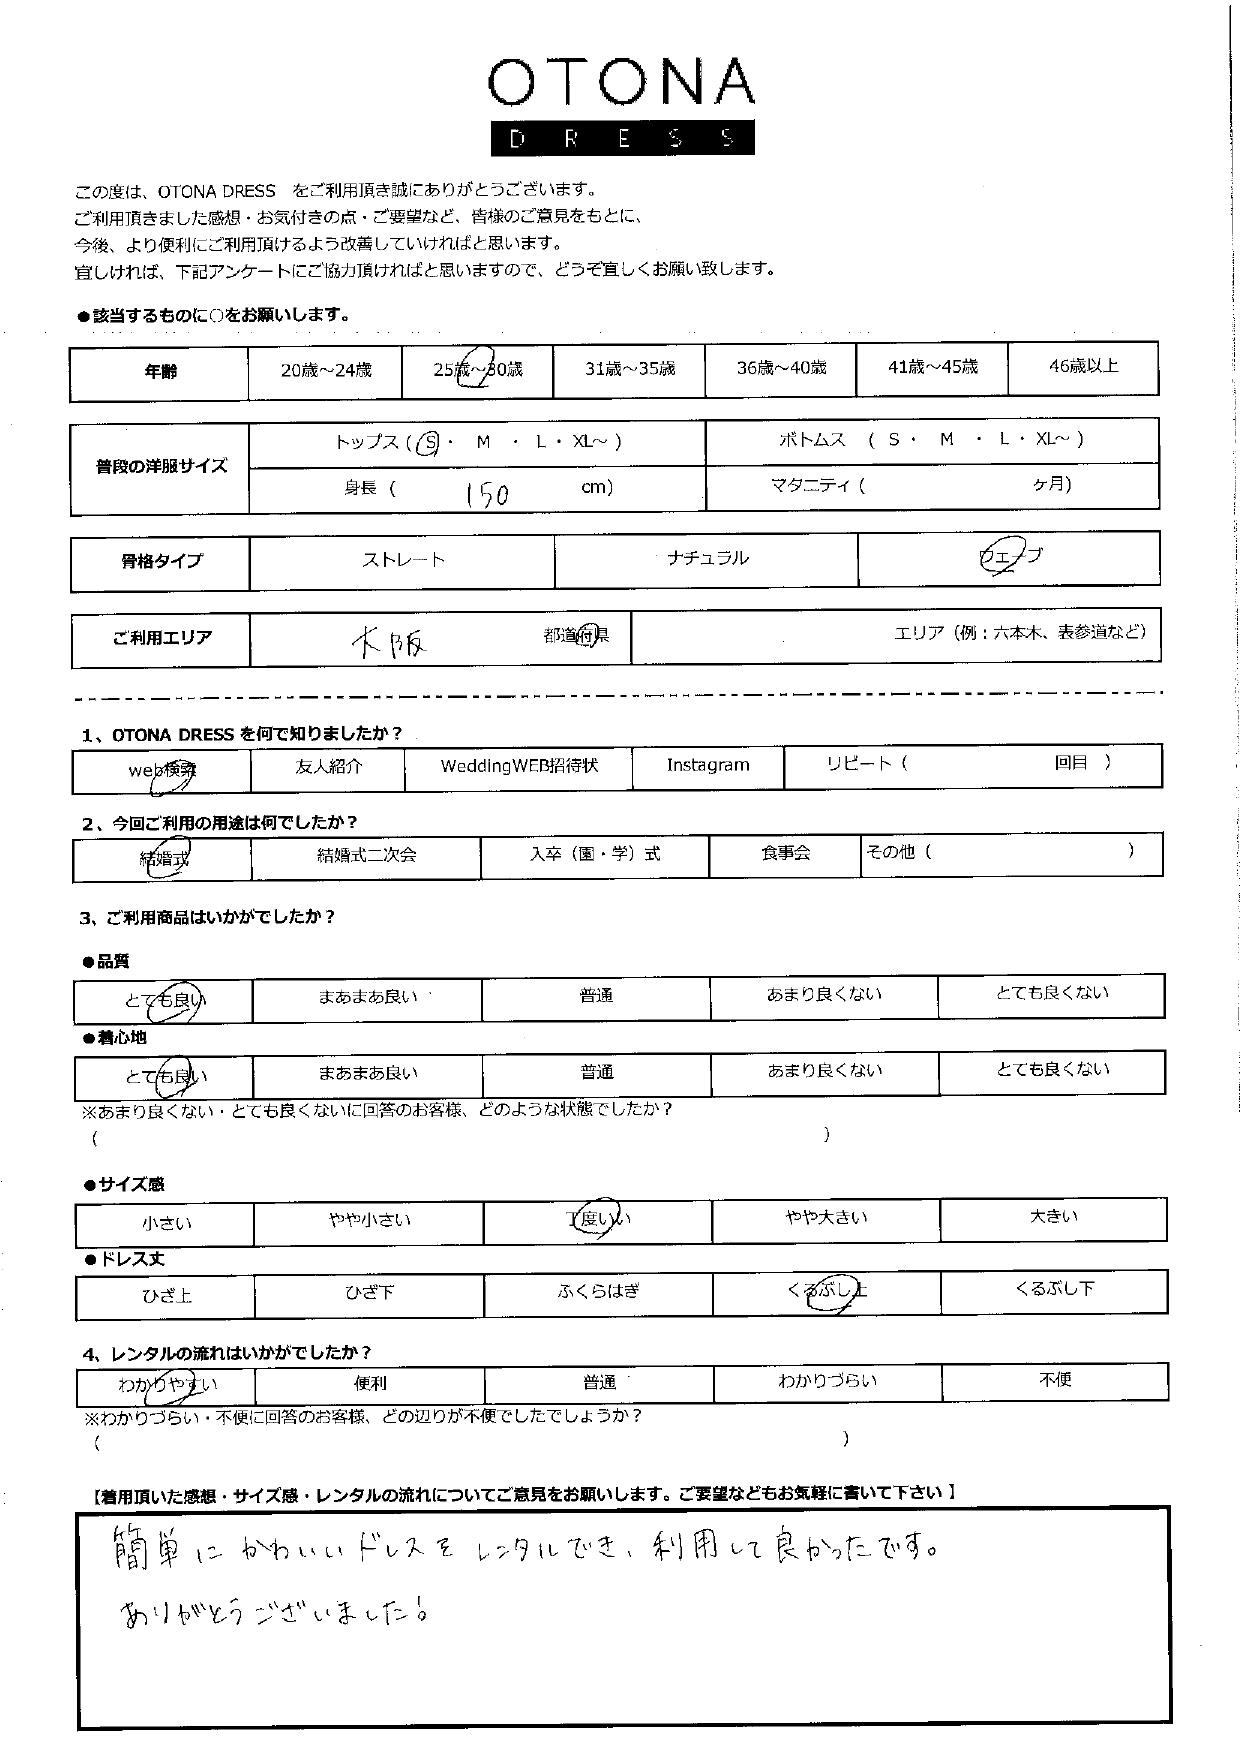 OTONA
DRESS
この度は、OTONA DRESS　をご利用頂き誠にありがとうございます。
ご利用頂きました感想・お気付きの点・ご要望など、皆様のご意見をもとに、
今後、より便利にご利用頂けるよう改善していければと思います。
宜しければ、下記アンケートにご協力頂ければと思いますので、どうぞ宜しくお願い致します。
●該当するものに○をお願いします。
年齢 20歳～24歳 25歳～30歳 31歳～35歳 36歳～40歳 41歳～45歳 46歳以上
普段の洋服サイズ トップス ( S ・ M ・ L ・ XL～ ) ボトムス ( S ・ M ・ L ・ XL～ )
身長 ( 150 cm) マタニティ ( ヶ月)
骨格タイプ ストレート ナチュラル ウェーブ
ご利用エリア 大阪 都道府県 エリア（例：六本木、表参道など）
1、OTONA DRESS を何で知りましたか？
web検索 友人紹介 WeddingWEB招待状 Instagram リピート ( 回目 )
2、今回ご利用の用途は何でしたか？
結婚式 結婚式二次会 入卒（園・学）式 食事会 その他 ( )
3、ご利用商品はいかがでしたか？
●品質
とても良い まあまあ良い 普通 あまり良くない とても良くない
●着心地
とても良い まあまあ良い 普通 あまり良くない とても良くない
※あまり良くない・とても良くないに回答のお客様、どのような状態でしたか？
( )
●サイズ感
小さい やや小さい 丁度いい やや大きい 大きい
●ドレス丈
ひざ上 ひざ下 ふくらはぎ くるぶし上 くるぶし下
4、レンタルの流れはいかがでしたか？
わかりやすい 便利 普通 わかりづらい 不便
※わかりづらい・不便に回答のお客様、どの辺りが不便でしたでしょうか？
( )
【着用頂いた感想・サイズ感・レンタルの流れについてご意見をお願いします。ご要望などもお気軽に書いて下さい 】
簡単にかわいいドレスをレンタルでき、利用して良かったです。
ありがとうございました！